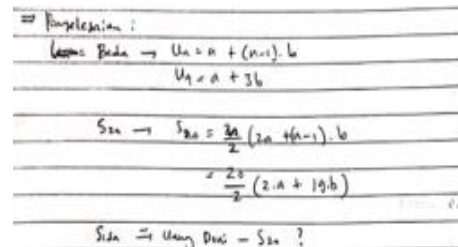 ⇒ Penyelesaian :
Beda → Un = a + (n-1). b
U4 = a + 3b
S20 → S20 = 20/2 (2a + (n-1). b
= 20/2 (2.a + 19.b)
Sisa = Uang Doni - S20 ?